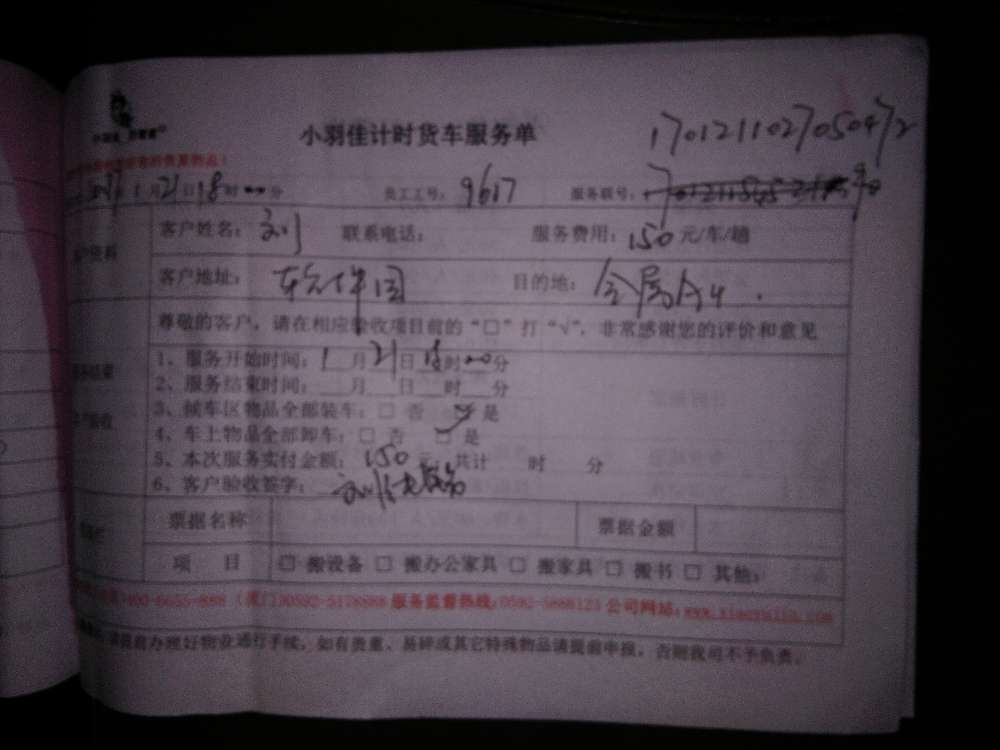 小羽佳计时货车服务单
1701211027050472
2017年1月21日18时00分 员工工号: 9617 服务联号:
客户姓名: 刘 联系电话: 服务费用: 150元/车/趟
客户地址: 软件园 目的地:
尊敬的客户，请在相应验收项目前的“□”打“√”，非常感谢您的评价和意见
1、服务开始时间: 1月21日18时00分
2、服务结束时间: 月 日 时 分
3、候车区物品全部装车: □ 否 □ 是
4、车上物品全部卸车: □ 否 □ 是
5、本次服务实付金额: 150元，共计 时 分
6、客户验收签字:
票据名称 票据金额
项 目 □ 搬设备 □ 搬办公家具 □ 搬家具 □ 搬书 □ 其他:
服务监督热线: 0592-5888123 公司网站:
办理好物业通行手续，如有贵重、易碎或其它特殊物品请提前申报，否则我司不予负责。